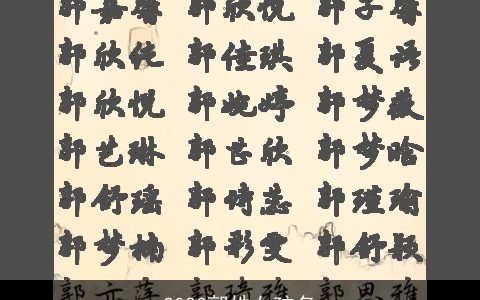 郭嘉馨 郭欣悦 郭子馨
郭欣依 郭佳琪 郭夏语
郭欣悦 郭婉婷 郭梦薇
郭艺琳 郭芷欣 郭梦晗
郭舒瑶 郭诗蕊 郭瑾瑜
郭梦楠 郭彩雯 郭舒颖
郭亦萍 郭琦雅 郭思雅